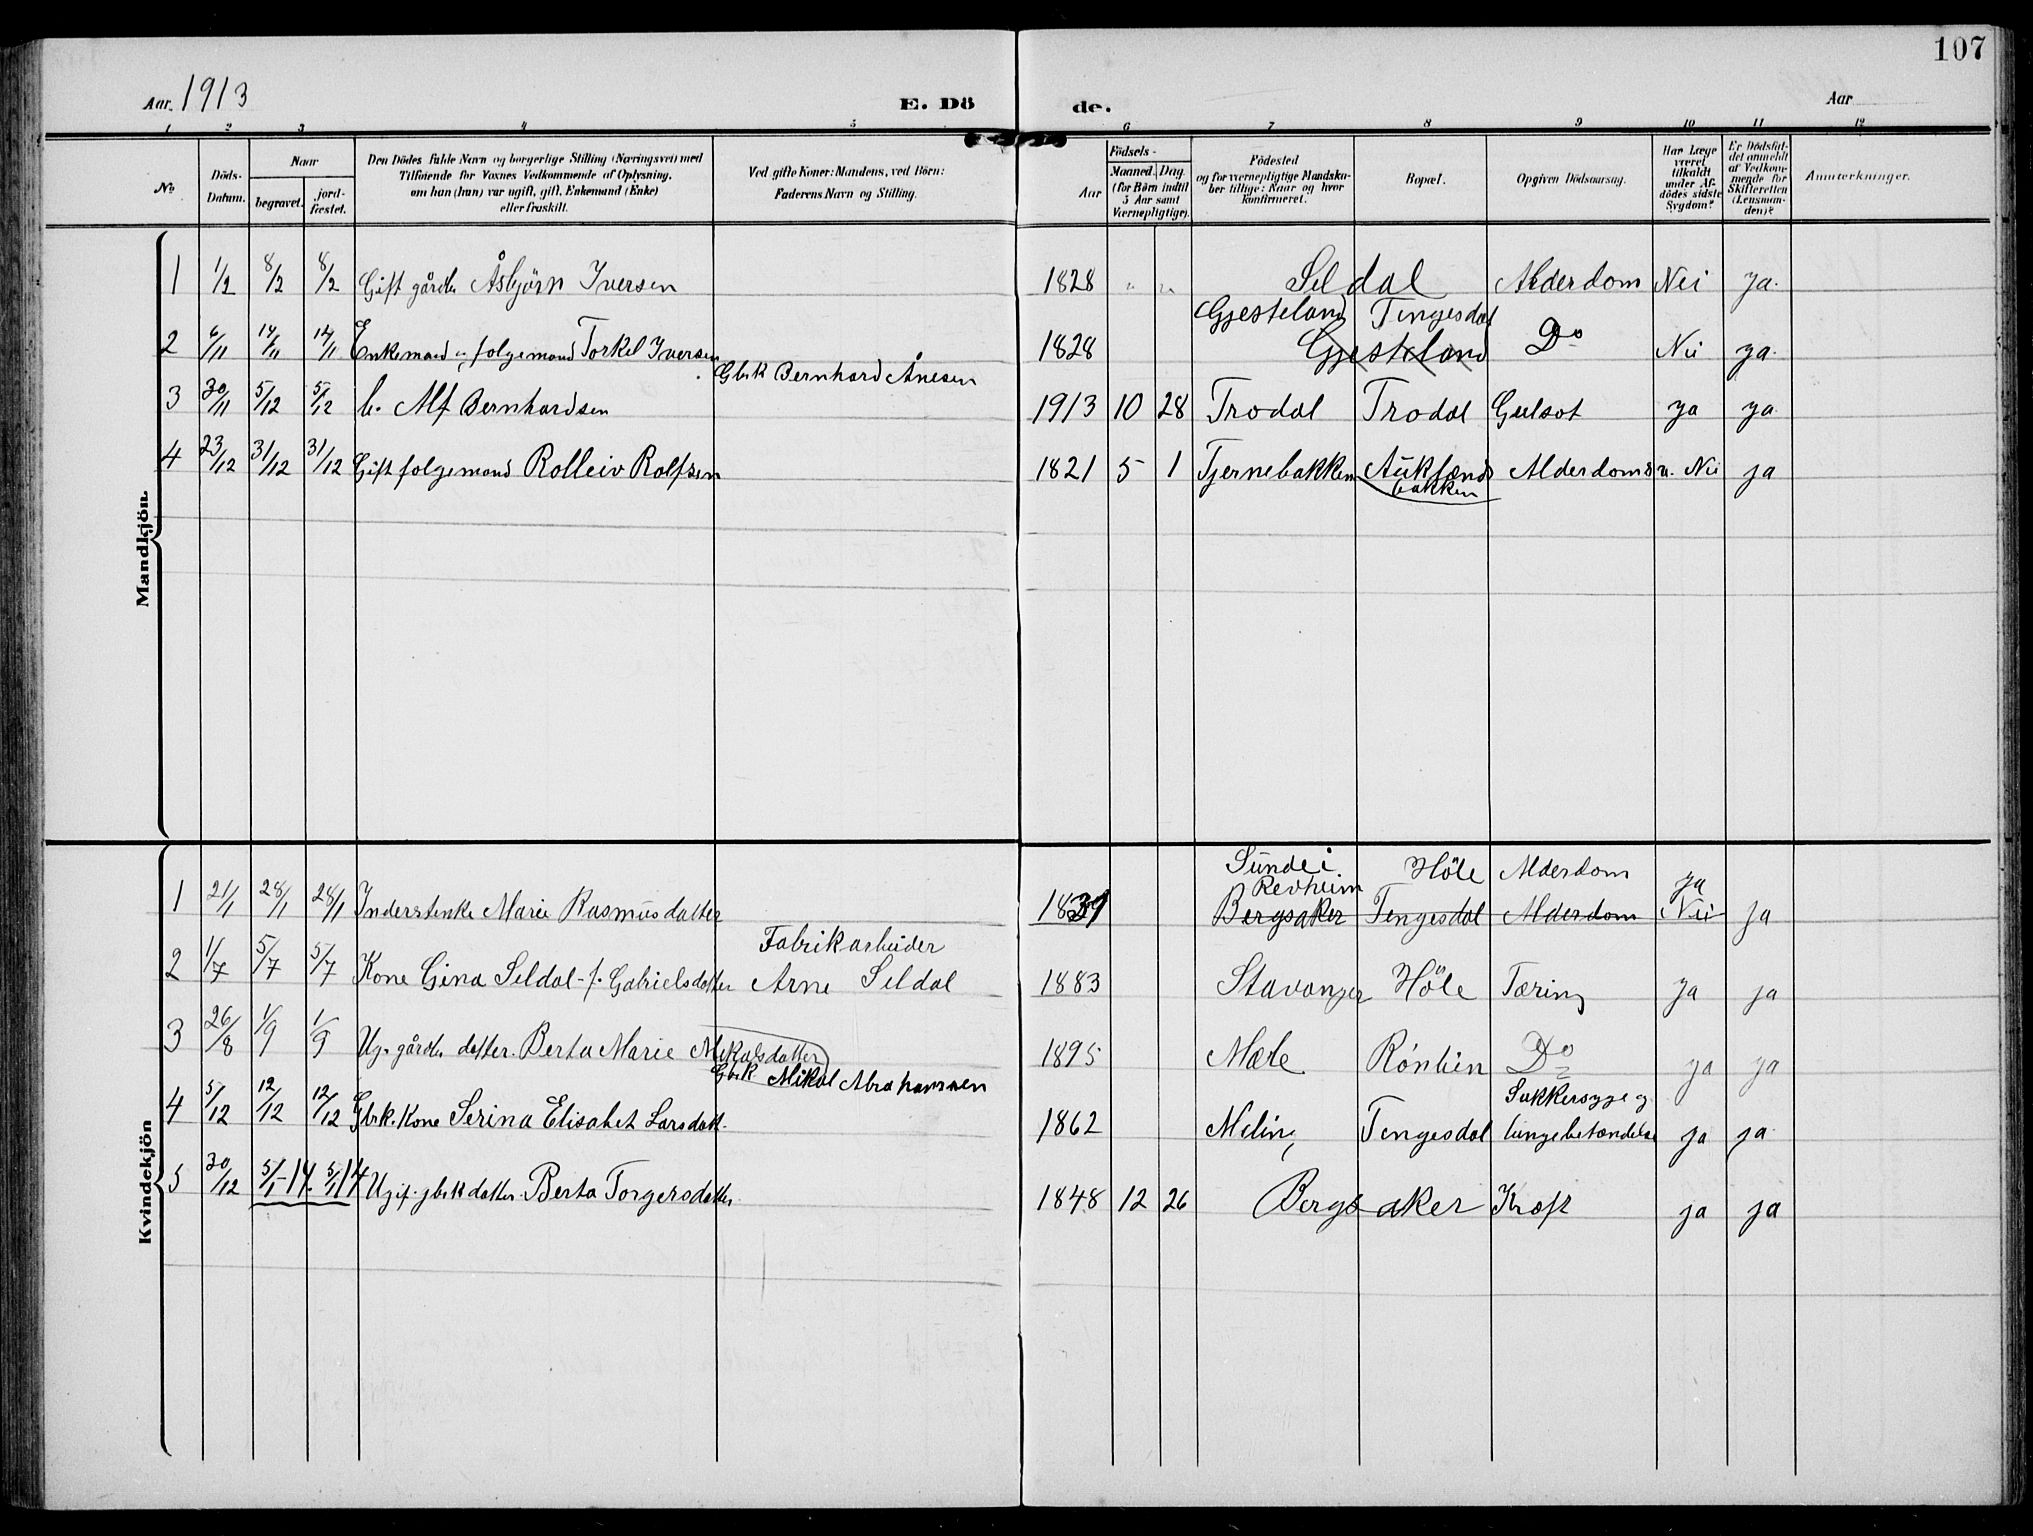 107
Aar. 1913 E. Dö de. Aar
1 2 3 4 5 6 7 8 9 10 11 12
No
Döds-Datum.
Naar
begravet.
jord-fæstet.
Den Dödes fulde Navn og borgerlige Stilling (Næringsvei) med
Tilföiende for Voxnes Vedkommende af Oplysning,
om han (hun) var ugift, gift, Enkemand (Enke)
eller fraskilt.
Ved gifte Koner: Mandens, ved Börn:
Faderens Navn og Stilling.
Födsels-
Aar
Maaned. Dag.
(for Börn indtil
5 Aar samt
Værnepligtige).
Födested
og for værnepligtige Mandska-
ber tillige: Naar og hvor
konfirmeret.
Bopæl.
Opgiven Dödsaarsag.
Har Læge
været
tilkaldt
under Af-
dödes sidste
Sygdom?
Er Dödsfal-
det anmeldt
af Vedkom-
mende for
Skifteretten
(Lensman-
den)?
Anmærkninger.
Mandkjön.
1 1/2 8/2 8/2 Gift gårdbr Åsbjörn Iversen 1828 " " Seldal Alderdom Nei ja.
Gjesteland Tengesdal
2 6/11 14/11 14/11 Enkemand og folgemand Torkel Iversen 1828 Gjesteland Do Nei ja.
Gbrk Bernhard Ånesen
3 30/11 5/12 5/12 b. Alf Bernhardsen 1913 10 28 Trodal Trodal Gulsot ja ja
4 23/12 31/12 31/12 Gift folgemand Rolleiv Rolfsen 1821 5 1 Tjernebakken Auklands Alderdoms Nei ja
bakken
Kvindekjön
Sunde i Höle Alderdom ja
Revheim
1 21/1 28/1 28/1 Inderstenke Marie Rasmusdatter 1831 Bergsaker Tengesdal Alderdom Nei ja
Fabrikarbeider
2 1/7 5/7 5/7 Kone Gina Seldal - f. Gabrielsdatter Arne Seldal 1883 Stavanger Höle Tæring ja ja
3 26/8 1/9 1/9 Ug. gårdbr datter. Berta Marie Mikalsdatter 1895 Mæle Rönlien Do ja ja
Gbrk Mikal Abrahamsen
Sukkersyge og
4 5/12 12/12 12/12 Gbrk. Kone Serina Elisabet Larsdatt. 1862 Meling Tengesdal lungebetændelse ja ja
5 30/12 5/1-14. 5/1 14 Ugif. gbrk datter. Berta Torgersdatter 1848 12 26 Bergsaker Kræft ja ja